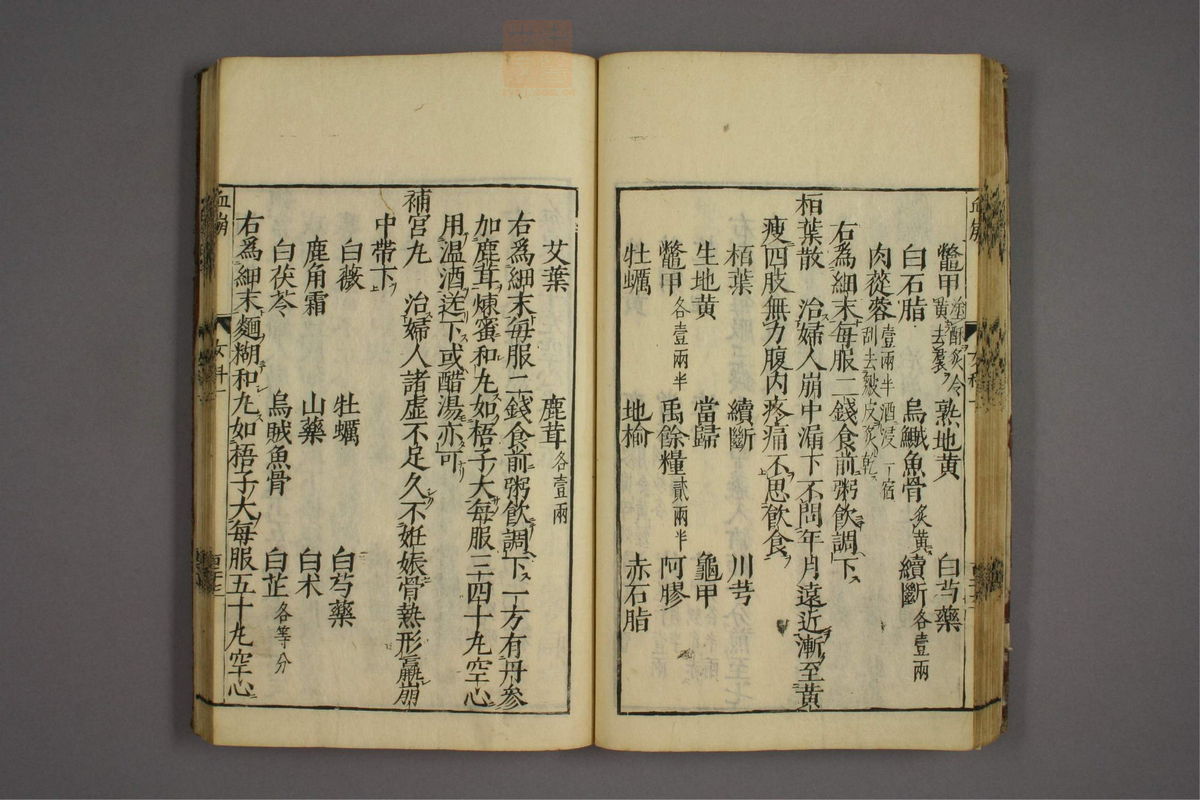 鼈甲塗酥炙令黄去裙 熟地黄 白芍藥
白石脂 烏鰂魚骨炙黄 續斷各壹兩
肉蓯蓉壹兩半酒浸一宿刮去皴皮炙乾
右爲細末每服二錢食前粥飲調下
栢葉散 治婦人崩中漏下不問年月遠近漸至黄
瘦四肢無力腹内疼痛不思飲食
栢葉 續斷 川芎
生地黄 當歸 龜甲
鼈甲各壹兩半 禹餘糧貳兩半 阿膠
牡蠣 地榆 赤石脂
艾葉 鹿茸各壹兩
右爲細末每服二錢食前粥飲調下一方有丹參
加鹿茸煉蜜和丸如梧子大每服三四十丸空心
用温酒送下或醋湯亦可
補宮丸 治婦人諸虚不足久不姙娠骨熱形羸崩
中帶下
白薇 牡蠣 白芍藥
鹿角霜 山藥 白术
白茯苓 烏賊魚骨 白芷各等分
右爲細末麵糊和丸如梧子大每服五十丸空心
血崩 女科